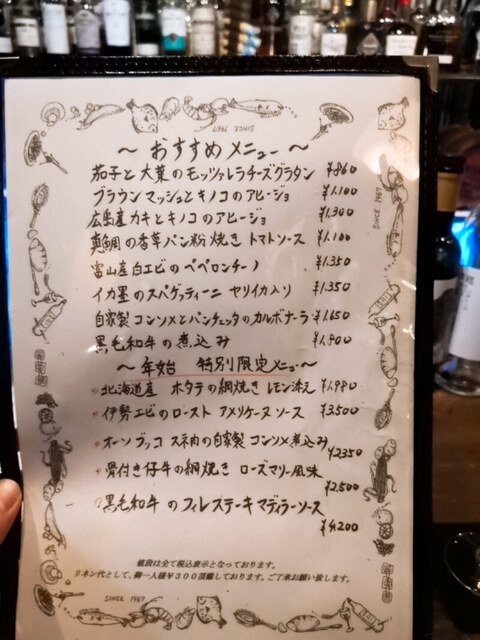 SINCE 1967
～おすすめメニュー～
茄子と大葉のモッツァレラチーズグラタン ¥860
ブラウンマッシュとキノコのアヒージョ ¥1.100
広島産カキとキノコのアヒージョ ¥1,300
真鯛の香草パン粉焼き トマトソース ¥1.100
富山産白エビのペペロンチーノ ¥1.350
イカ墨のスパゲッティーニ ヤリイカ入り ¥1.350
自家製コンソメとパンチェッタのカルボナーラ ¥1.650
黒毛和牛の煮込み ¥1.800
～年始 特別限定メニュー～
北海道産 ホタテの網焼き レモン添え ¥1.980
伊勢エビのロースト アメリケーヌソース ¥3.500
オーソブッコ スネ肉の自家製コンソメ煮込み ¥2350
骨付き仔牛の網焼き ローズマリー風味 ¥2.500
黒毛和牛のフィレステーキ マディラーソース ¥4.200
値段は全て税込表示となっております。
リネン代として、御一人様￥３００頂戴しております。ご了承お願い致します。
SINCE 1967
SINCE 1967